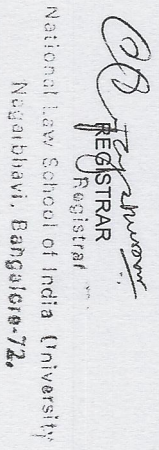 REGISTRAR
Registrar
National Law School of India University
Nagarbhavi, Bangalore-72.